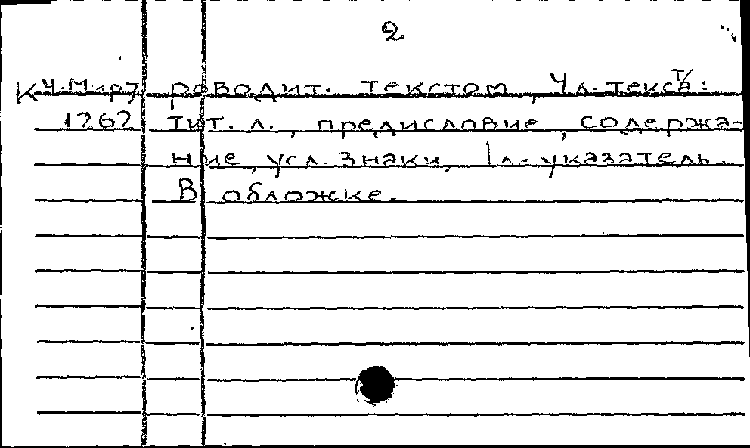 2
К Ч.М-р7 роводит. текстом, 4л. текста:
1262 тит. л., предисловие, содержа-
ние, усл. знаки, 1л. указатель.
В обложке.